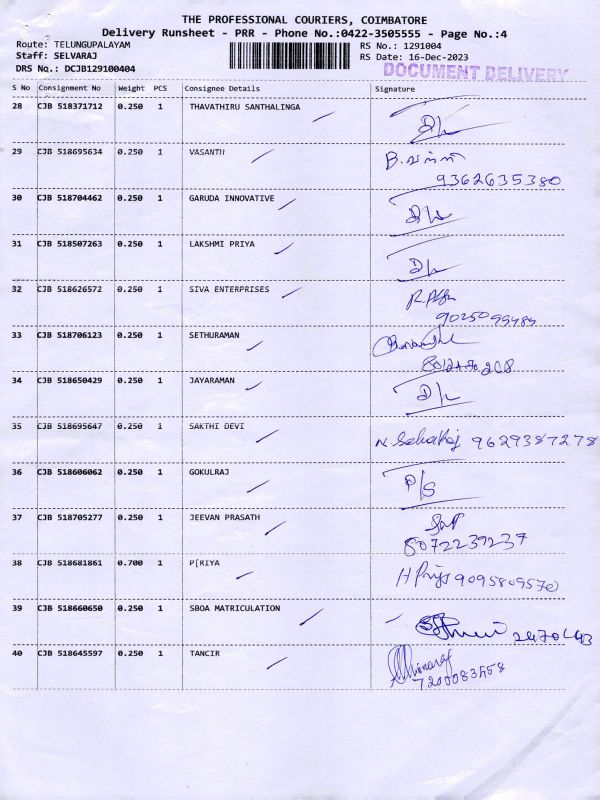 THE PROFESSIONAL COURIERS, COIMBATORE
Delivery Runsheet - PRR - Phone No.:0422-3505555 - Page No.:4
Route: TELUNGUPALAYAM RS No.: 1291004
Staff: SELVARAJ RS Date: 16-Dec-2023
DRS No.: DCJB129100404 DOCUMENT DELIVERY
S No Consignment No Weight PCS Consignee Details Signature
28 CJB 518371712 0.250 1 THAVATHIRU SANTHALINGA D/L
29 CJB 518695634 0.250 1 VASANTH
9362635380
30 CJB 518704462 0.250 1 GARUDA INNOVATIVE D/L
31 CJB 518507263 0.250 1 LAKSHMI PRIYA D/L
32 CJB 518626572 0.250 1 SIVA ENTERPRISES
33 CJB 518706123 0.250 1 SETHURAMAN
34 CJB 518650429 0.250 1 JAYARAMAN D/L
35 CJB 518695647 0.250 1 SAKTHI DEVI 9629387278
36 CJB 518606062 0.250 1 GOKULRAJ P/S
37 CJB 518705277 0.250 1 JEEVAN PRASATH
8072239237
38 CJB 518681861 0.700 1 P[RIYA H Priya 9095809570
39 CJB 518660650 0.250 1 SBOA MATRICULATION
40 CJB 518645597 0.250 1 TANCIR